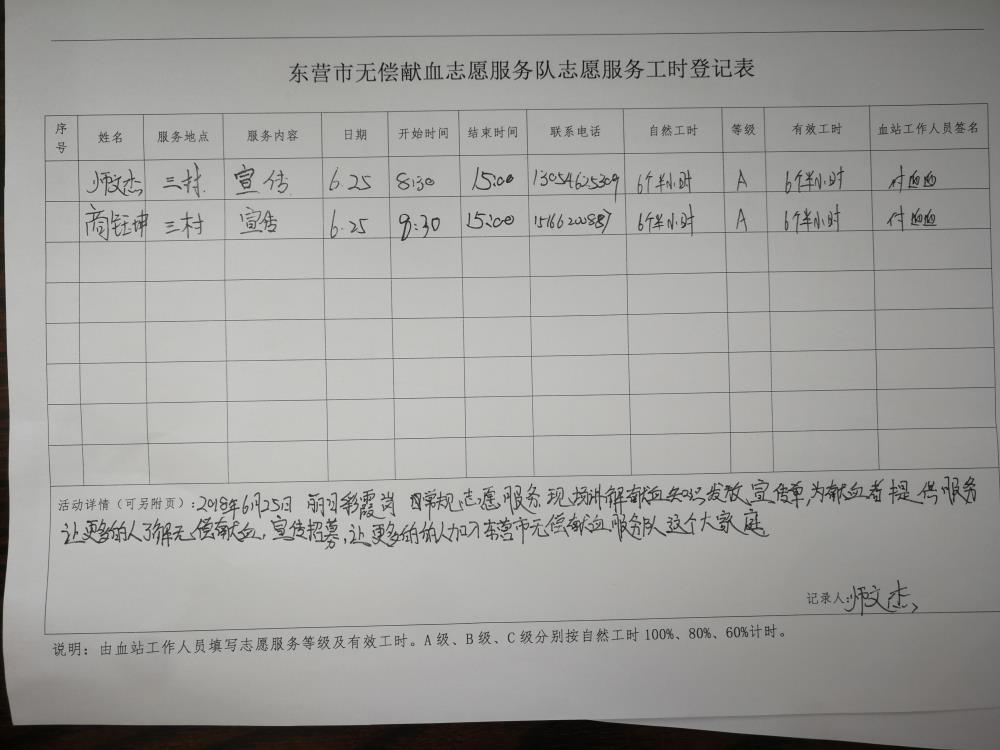 东营市无偿献血志愿服务队志愿服务工时登记表
序号 姓名 服务地点 服务内容 日期 开始时间 结束时间 联系电话 自然工时 等级 有效工时 血站工作人员签名
师文杰 三村 宣传 6.25 8:30 15:00 13054625309 6个半小时 A 6个半小时
商钰坤 三村 宣传 6.25 8:30 15:00 6个半小时 A 6个半小时
活动详情（可另附页）:2018年6月25日 彩霞岗 日常规志愿服务,现场讲解献血知识发放宣传单,为献血者提供服务
让更多的人了解无偿献血,宣传招募,让更多的的人加入东营市无偿献血服务队这个大家庭
记录人:师文杰
说明：由血站工作人员填写志愿服务等级及有效工时。A级、B级、C级分别按自然工时100%、80%、60%计时。